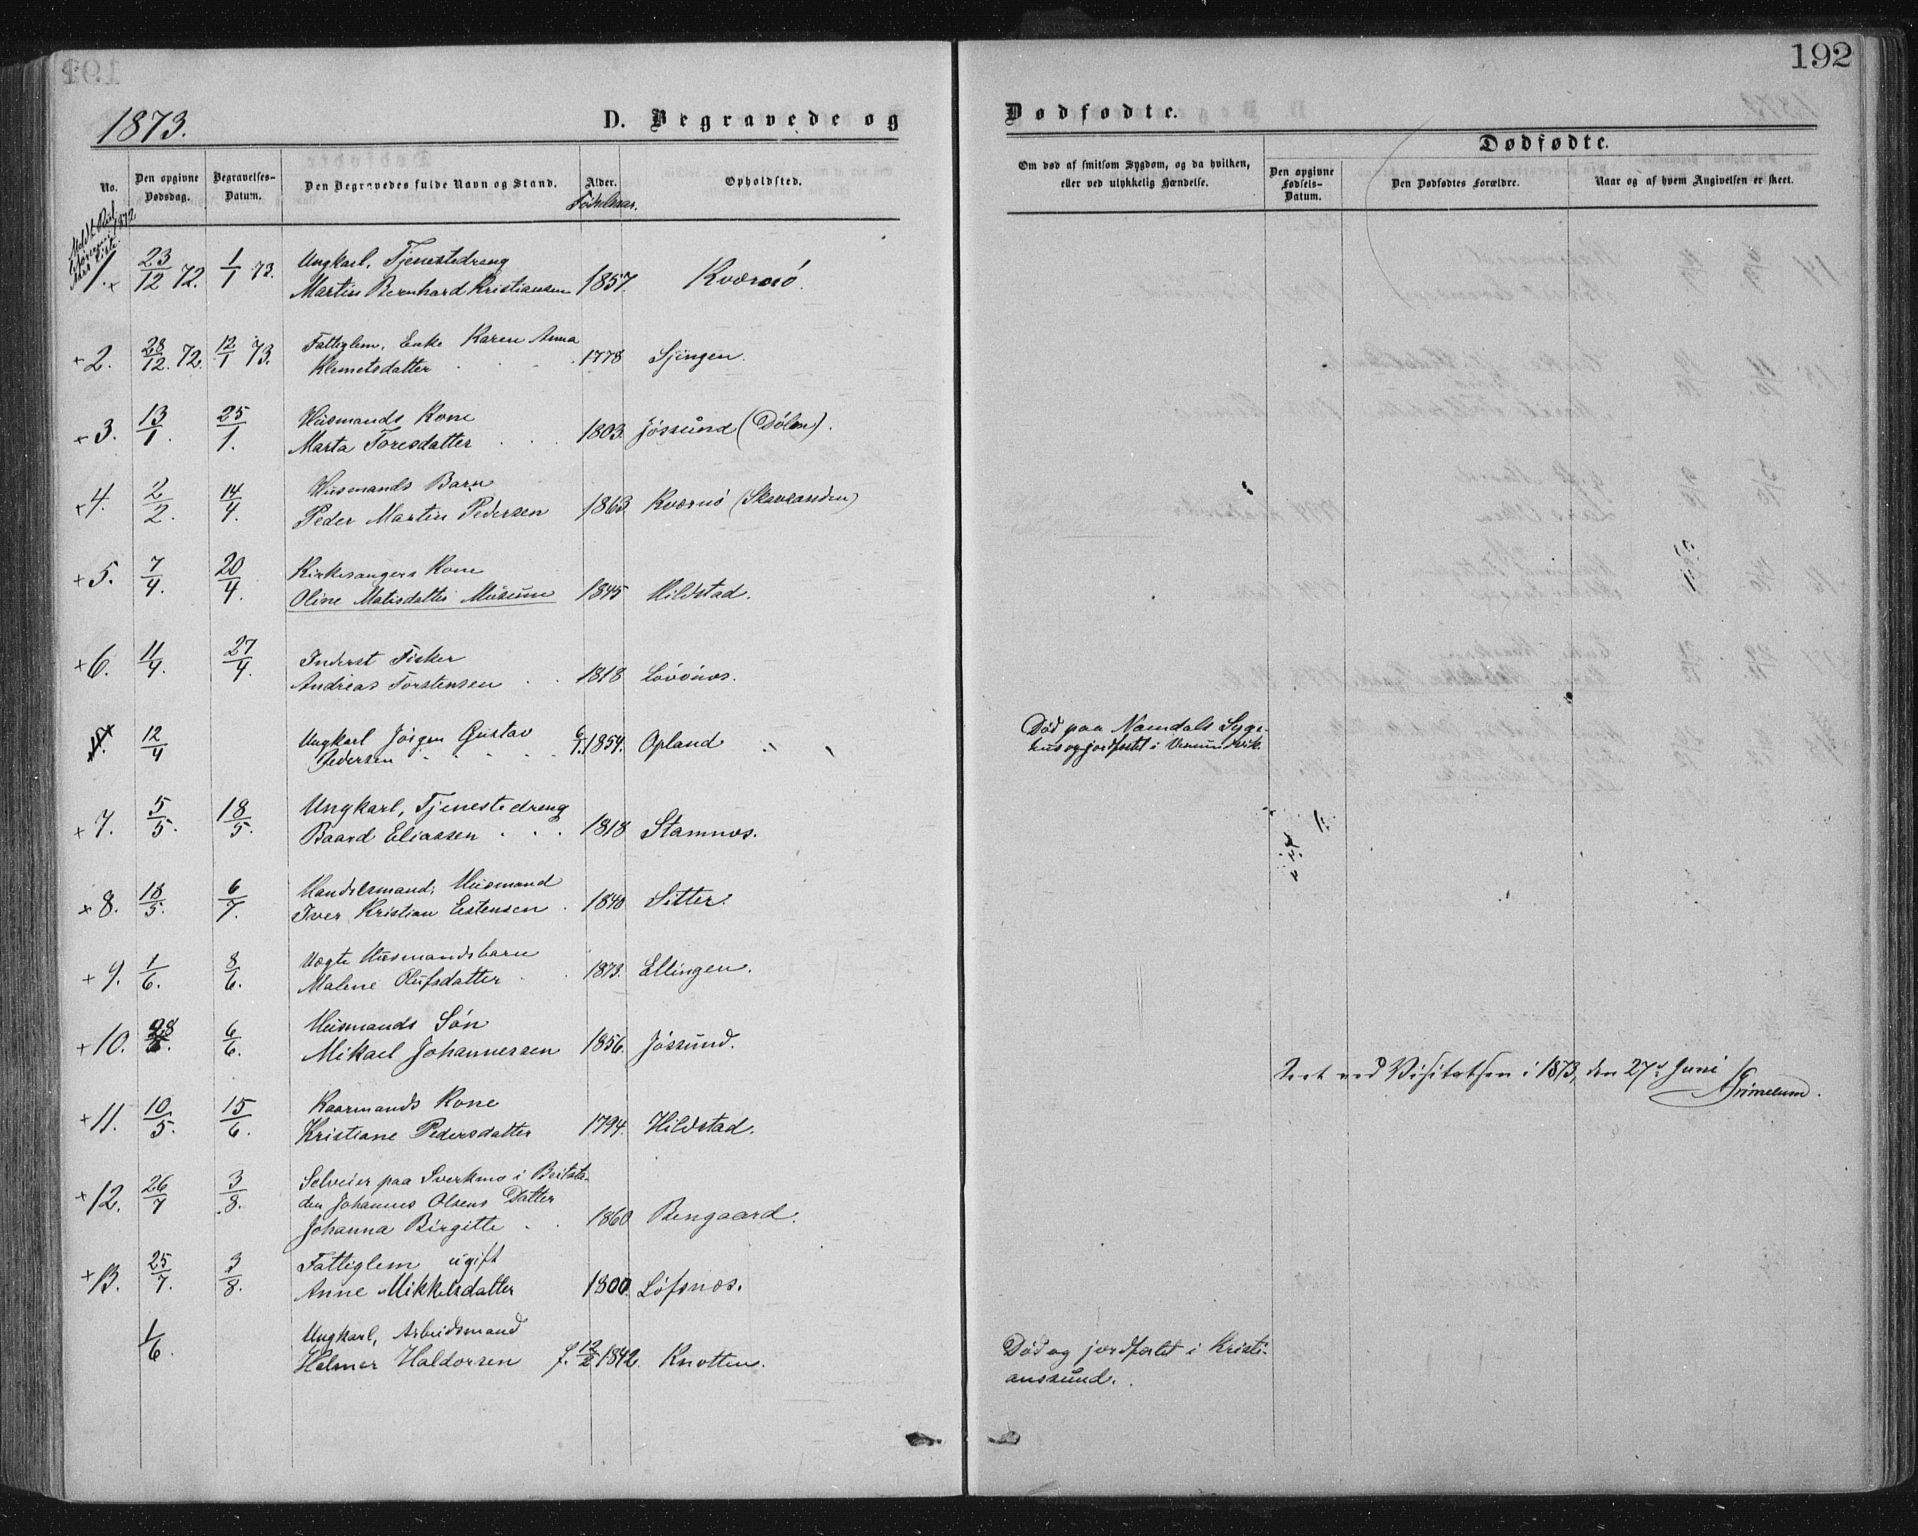 192
1873.
D. Begravede og
Dødfødte.
No.
Den opgivne Dødsdag.
Begravelses-Datum.
Den Begravedes fulde Navn og Stand.
Alder.
Fødselsaar.
Opholdsted.
Om død af smitsom Sygdom, og da hvilken, eller ved ulykkelig Hændelse.
Dødfødte.
Den opgivne Fødsels-Datum.
Den Dødfødtes Forældre.
Naar og af hvem Angivelsen er skeet.
1. 23/12 72. 1/1 73. Ungkarl, Tjenestedreng
Martin Bernhard Kristiansen 1857. Kværnø.
+ 2. 28/12 72. 12/1 73. Fattiglem, Enke Karen Anna
Klemetsdatter 1778 Sjingen.
+ 3. 13/1. 25/1. Husmands Kone
Marta Toresdatter 1803. Jøssund (Dølen).
+ 4. 2/2. 14/4. Husmands Barn
Peder Martin Pedersen 1863 Kværnø
+ 5. 7/4. 20/4. Kirkesangers Kone
Oline Matisdatter Museum 1845 Hildstad.
+ 6. 11/4. 27/4. Inderst Fisker
Andreas Torstensen 1818 Løvønes.
12/4 Ungkarl Jørgen Gustav
Pedersen 6/7. 1854. Opland
Død paa Namdals Syge-
hus og jordfæstet i Vemundvik
+ 7. 5/5. 18/5. Ungkarl, Tjenestedreng
Baard Eliassen 1818 Stamnes.
+ 8. 18/5. 6/7. Handelsmand, Husmand
Iver Kristian Estensen 1840 Sitter.
+ 9. 1/6. 8/6. Ægte Husmandsbarn
Malene Olufsdatter 1873. Ellingen.
+ 10. 28/5. 6/6. Husmands Søn
Mikael Johannessen 1856. Jøssund.
Seet ved Visitatsen i 1873, den 27d Juni
Grimelund.
+ 11. 10/5. 15/6. Kaarmands Kone
Kristiane Pedersdatter 1794. Hildstad.
+ 12. 26/7 3/8. Selveier paa Sverkmo i Beitsta-
den Johannes Olsens Datter
Johanna Birgitte 1860 Bengaard.
+ 13. 25/7. 3/8. Fattiglem ugift
Anne Mikkelsdatter 1800. Løfsnes.
1/6. Ungkarl, Arbeidsmand
Helmer Haldorsen f. 12/2 1842. Knotten.
Død og jordfæstet i Kristi-
anssund.